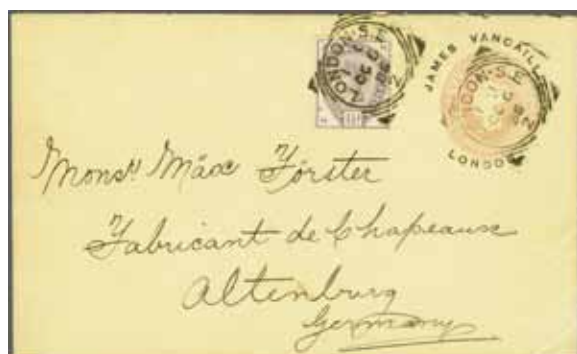 LONDON·S.E
JAMES VANDAILL
LONDON
Monsr Mäx Förster
Fabricant de Chapeaux
Altenburg
Germany